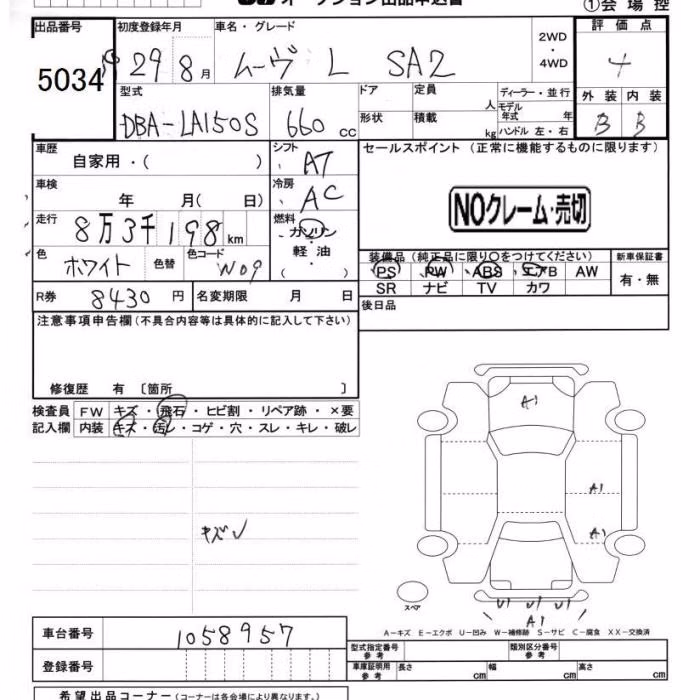 オークション出品申込書 ①会場控
出品番号 初度登録年月 車名・グレード 2WD・4WD 評価点
5034 29年8月 ムーヴ L SA2 4
型式 排気量 ドア 定員 人 ディーラー・並行 外装 内装
DBA-LA150S 660 cc 形状 積載 kg モデル年式 年 ハンドル 左・右 B B
車歴 自家用・( ) シフト AT セールスポイント (正常に機能するものに限ります)
車検 年 月( 日) 冷房 AC
NOクレーム・売切
走行 8万3千198km 燃料 ガソリン・軽油・( )
色 ホワイト 色替 色コード W09
装備品 (純正品に限り○をつけてください) 新車保証書
PS PW ABS エアB AW 有・無
SR ナビ TV カワ
R券 8430円 名変期限 月 日 後日品
注意事項申告欄(不具合内容等は具体的に記入して下さい)
修復歴 有 〔箇所 〕
検査員 FW キズ・飛石・ヒビ割・リペア跡・×要
記入欄 内装 キズ・汚レ・コゲ・穴・スレ・キレ・破レ
A1
A1
キズ A1
スペア U1 U1 U1
A1
A-キズ E-エクボ U-凹み W-補修跡 S-サビ C-腐食 XX-交換済
車台番号 1058957
型式指定番号 参考 類別区分番号 参考
登録番号 車庫証明用 参考 長さ cm 幅 cm 高さ cm
希望出品コーナー (コーナーは各会場により異なります。)